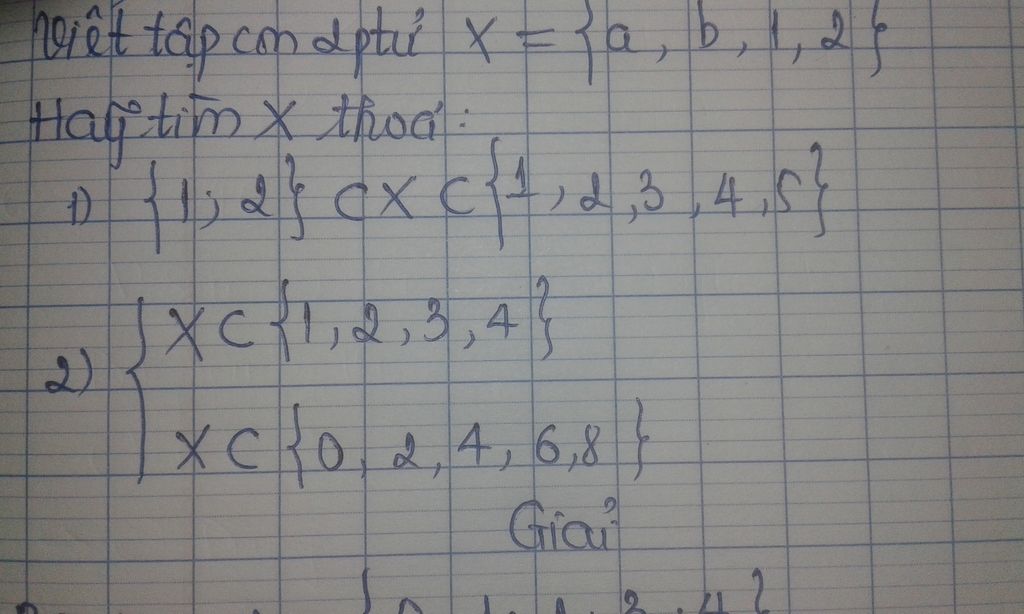 Viết tập con 2 ptử X = {a, b, 1, 2}
Hãy tìm X thoả:
1) {1; 2} ⊂ X ⊂ {1, 2, 3, 4, 5}
2) { X ⊂ {1, 2, 3, 4}
X ⊂ {0, 2, 4, 6, 8}
Giải